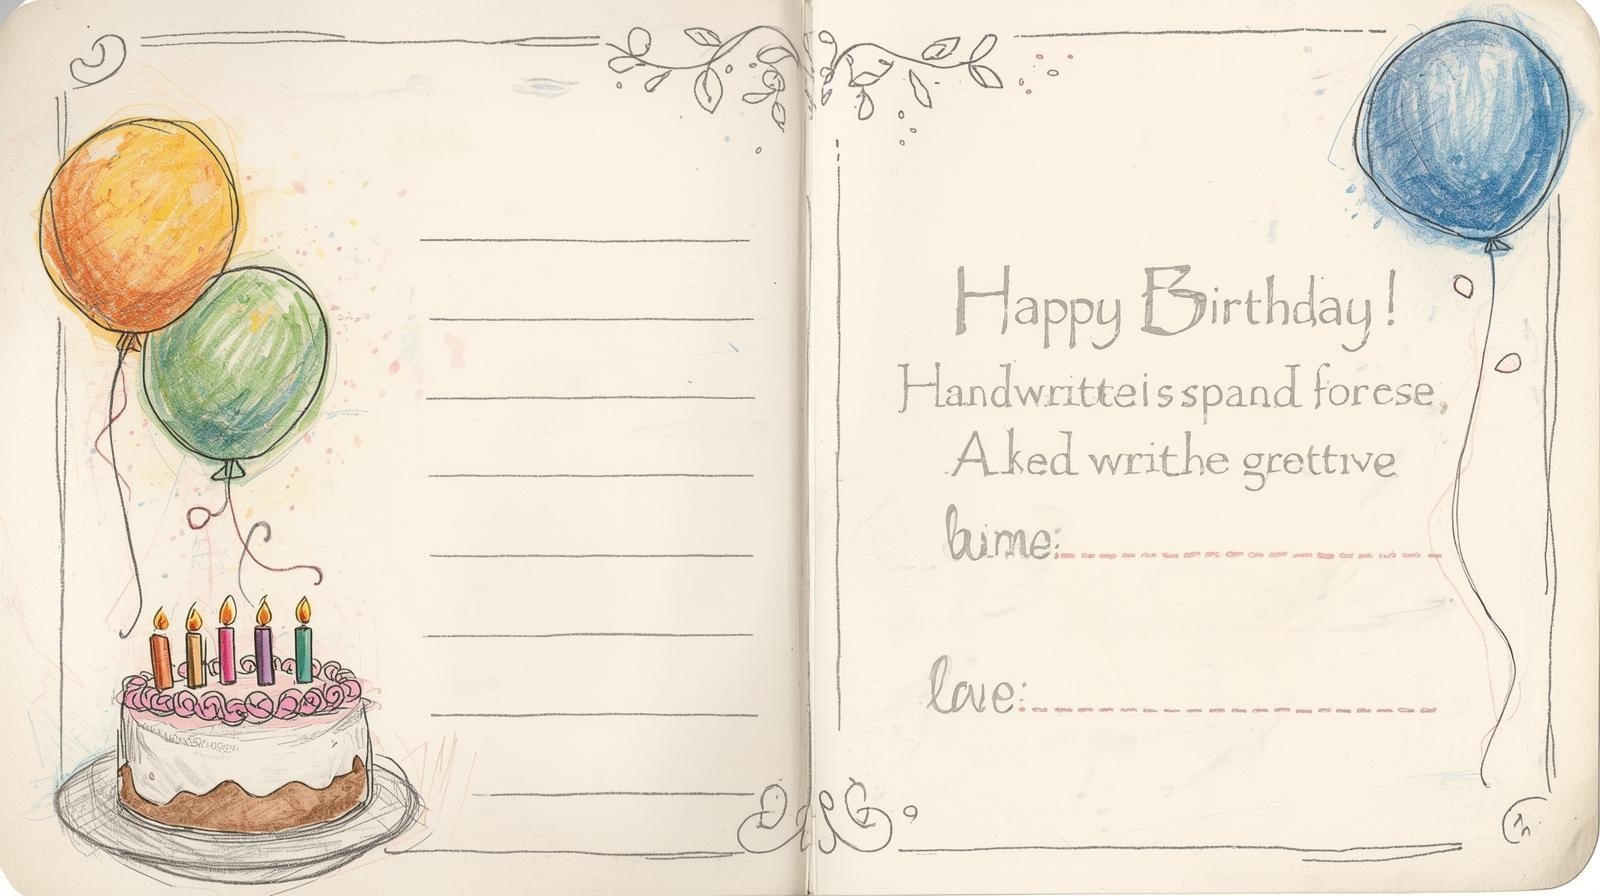 Happy Birthday!
Handwritteis spand for ese,
Aked writhe grettive
bime:
love: